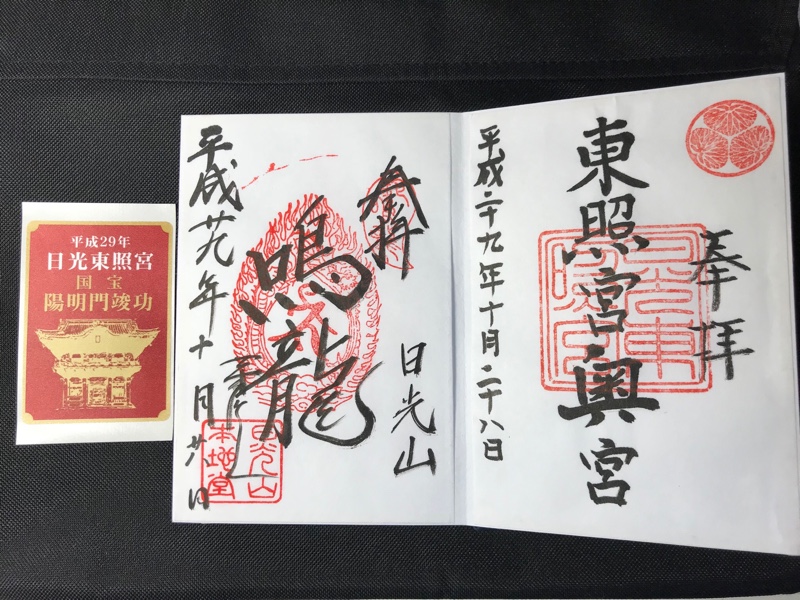 奉拝
東照宮奥宮
平成二十九年十月二十八日
奉拝
日光山
鳴龍
平成廿九年十月廿八日
日光山
本地堂
平成29年
日光東照宮
国宝
陽明門竣功